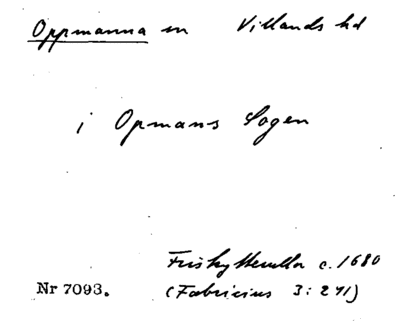 Oppmanna sn Villands hd
i Opmans Sogen
Friskytterulla c. 1680
Nr 7093. (Fabricius 3: 241)